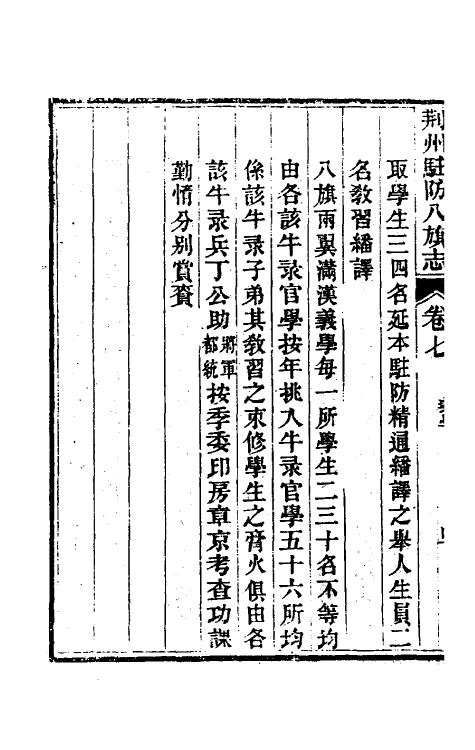 荆州駐防八旗志 卷七
取學生三四名延本駐防精通繙譯之舉人生員二
名教習繙譯
八旗兩翼滿漢義學每一所學生二三十名不等均
由各該牛彔官學按年挑入牛彔官學五十六所均
係該牛彔子弟其教習之束修學生之膏火俱由各
該牛彔兵丁公助將軍都統按季委印房章京考查功課
勤惰分别賞賚